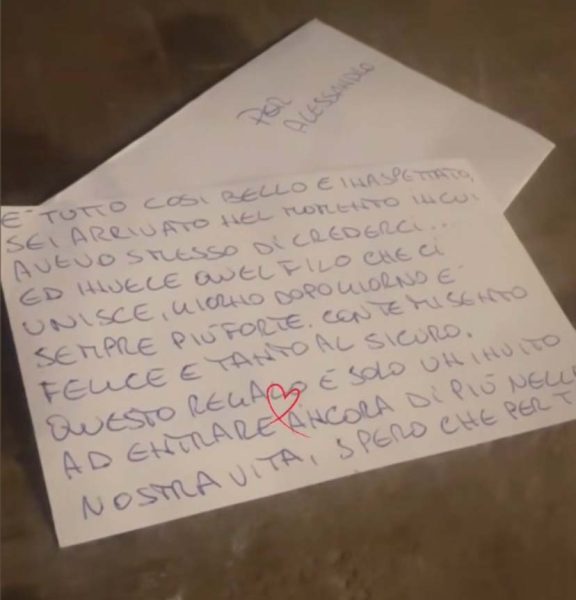 PER
ALESSANDRO
E' TUTTO COSI BELLO E INASPETTATO,
SEI ARRIVATO NEL MOMENTO IN CUI
AVEVO SMESSO DI CREDERCI...
ED INVECE QUEL FILO CHE CI
UNISCE, GIORNO DOPO GIORNO E'
SEMPRE PIÙ FORTE. CON TE MI SENTO
FELICE E TANTO AL SICURO.
QUESTO REGALO È SOLO UN INVITO
AD ENTRARE ANCORA DI PIÙ NELLA
NOSTRA VITA, SPERO CHE PER T